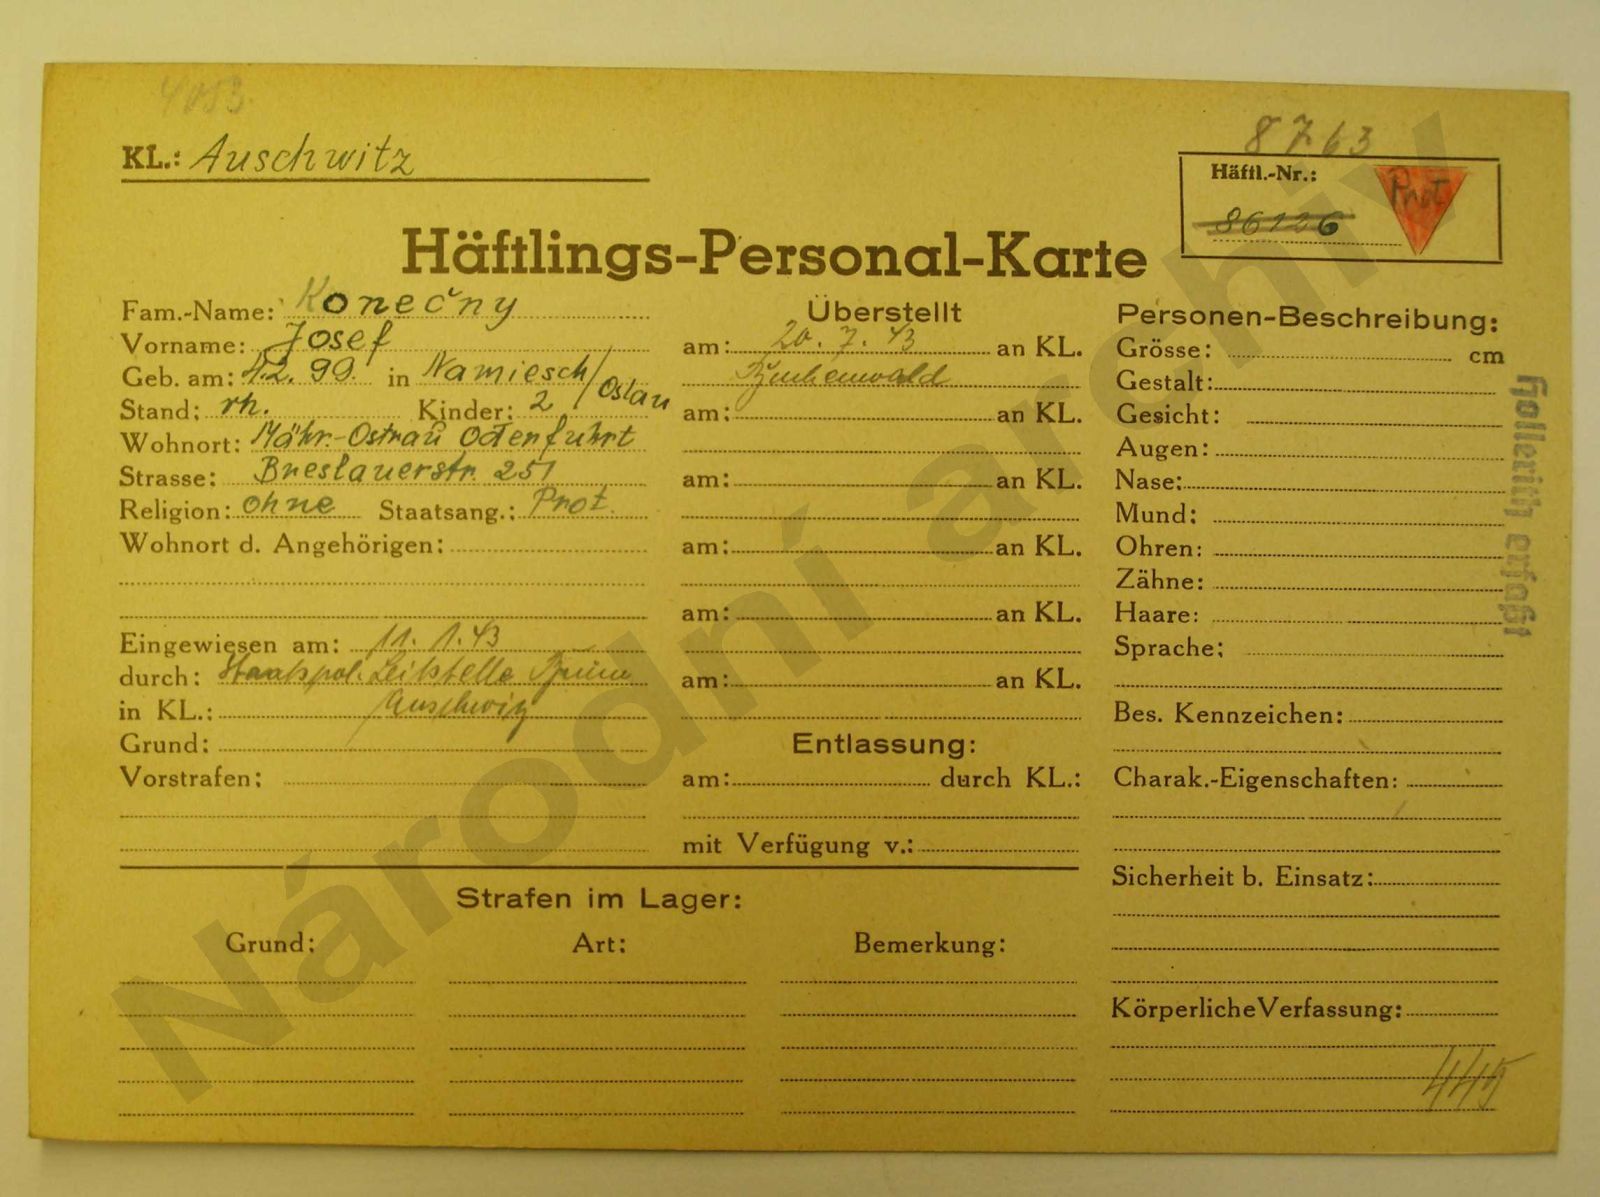 4053.
KL.: Auschwitz
8763
Häftl.-Nr.:
86126
Prot
Häftlings-Personal-Karte
Fam.-Name: Konečny
Vorname: Josef
Geb. am: 1.2. 99. in Namiesch/Oslau
Stand: vh. Kinder: 2
Wohnort: Mähr.-Ostrau Oderfuhrt
Strasse: Breslauerstr. 251
Religion: ohne Staatsang.: Prot.
Wohnort d. Angehörigen:
Eingewiesen am: 11. 1. 43
durch: Staatspol. Leitstelle Brünn
in KL.: Auschwitz
Grund:
Vorstrafen:
Überstellt
am: 20. 7. 43 an KL.
Buchenwald
am: an KL.
am: an KL.
am: an KL.
am: an KL.
am: an KL.
Entlassung:
am: durch KL.:
mit Verfügung v.:
Personen-Beschreibung:
Grösse: cm
Gestalt:
Gesicht:
Augen:
Nase:
Mund:
Ohren:
Zähne:
Haare:
Sprache:
Bes. Kennzeichen:
Charak.-Eigenschaften:
Sicherheit b. Einsatz:
Körperliche Verfassung:
Strafen im Lager:
Grund: Art: Bemerkung:
Hollerith erfaßt
Národní archiv